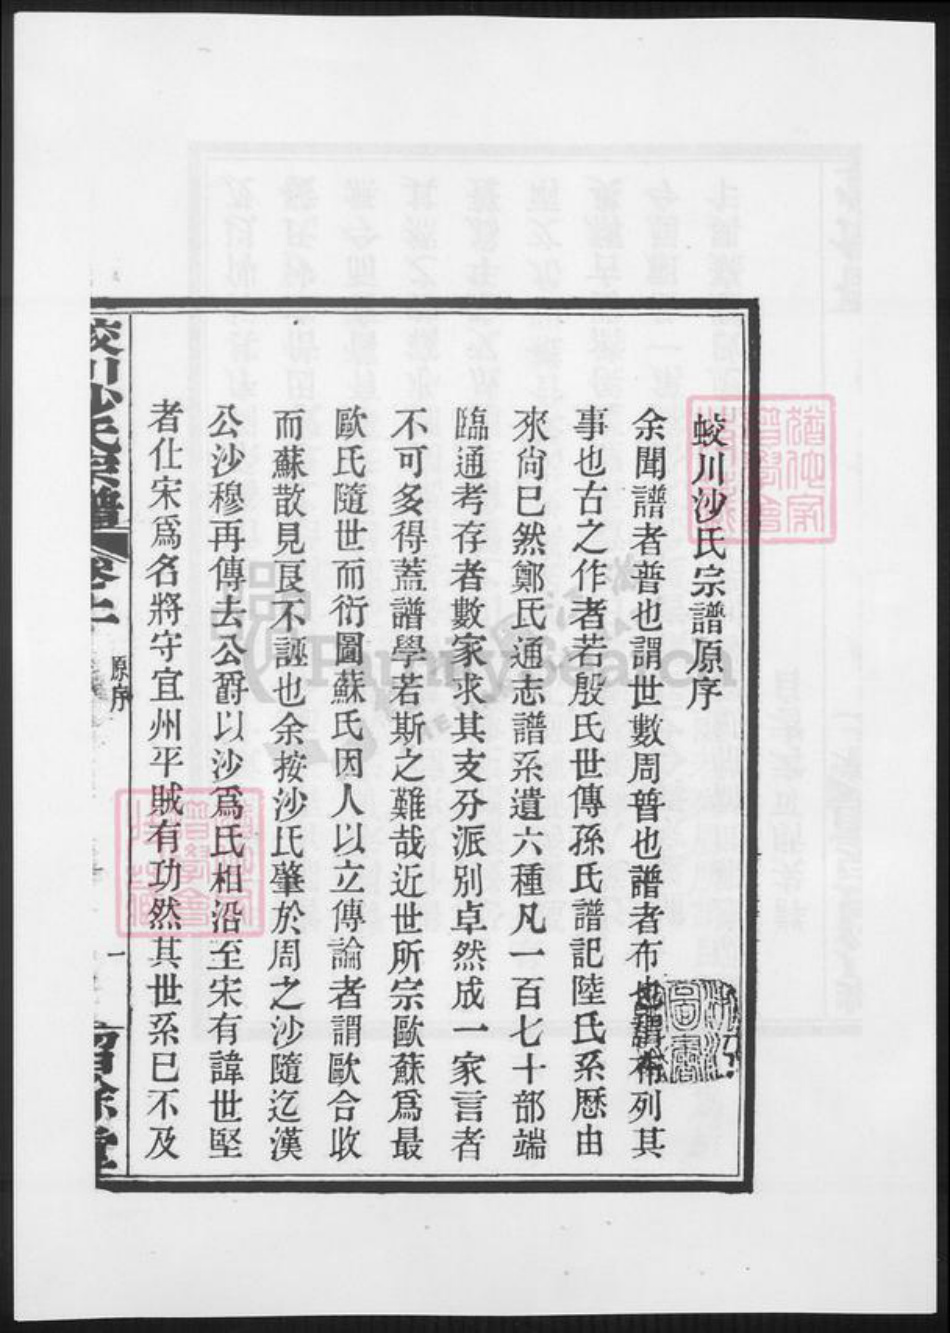 蛟川沙氏宗譜原序
余聞譜者普也謂世數周普也譜者布也謂布列其
事也古之作者若殷氏世傳孫氏譜記陸氏系歷由
來尙已然鄭氏通志譜系遺六種凡一百七十部端
臨通考存者數家求其支分派別卓然成一家言者
不可多得蓋譜學若斯之難哉近世所宗歐蘇爲最
歐氏隨世而衍圖蘇氏因人以立傳論者謂歐合收
而蘇散見良不誣也余按沙氏肇於周之沙隨迄漢
公沙穆再傳去公爵以沙爲氏相沿至宋有諱世堅
者仕宋爲名將守宜州平賊有功然其世系已不及
蛟川沙氏宗譜
卷之上
原序
一
留餘堂
FamilySearch